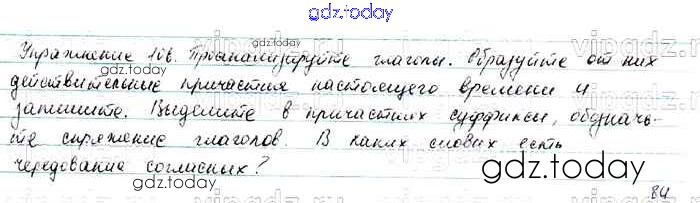 gdz.today
Упражнение 106. Проанализируйте глаголы. Образуйте от них
gdz.today
действительные причастия настоящего времени и
запишите. Выделите в причастиях суффиксы, обозначь-
те спряжение глаголов. В каких словах есть
чередование согласных?
gdz.today
gdz.today
84